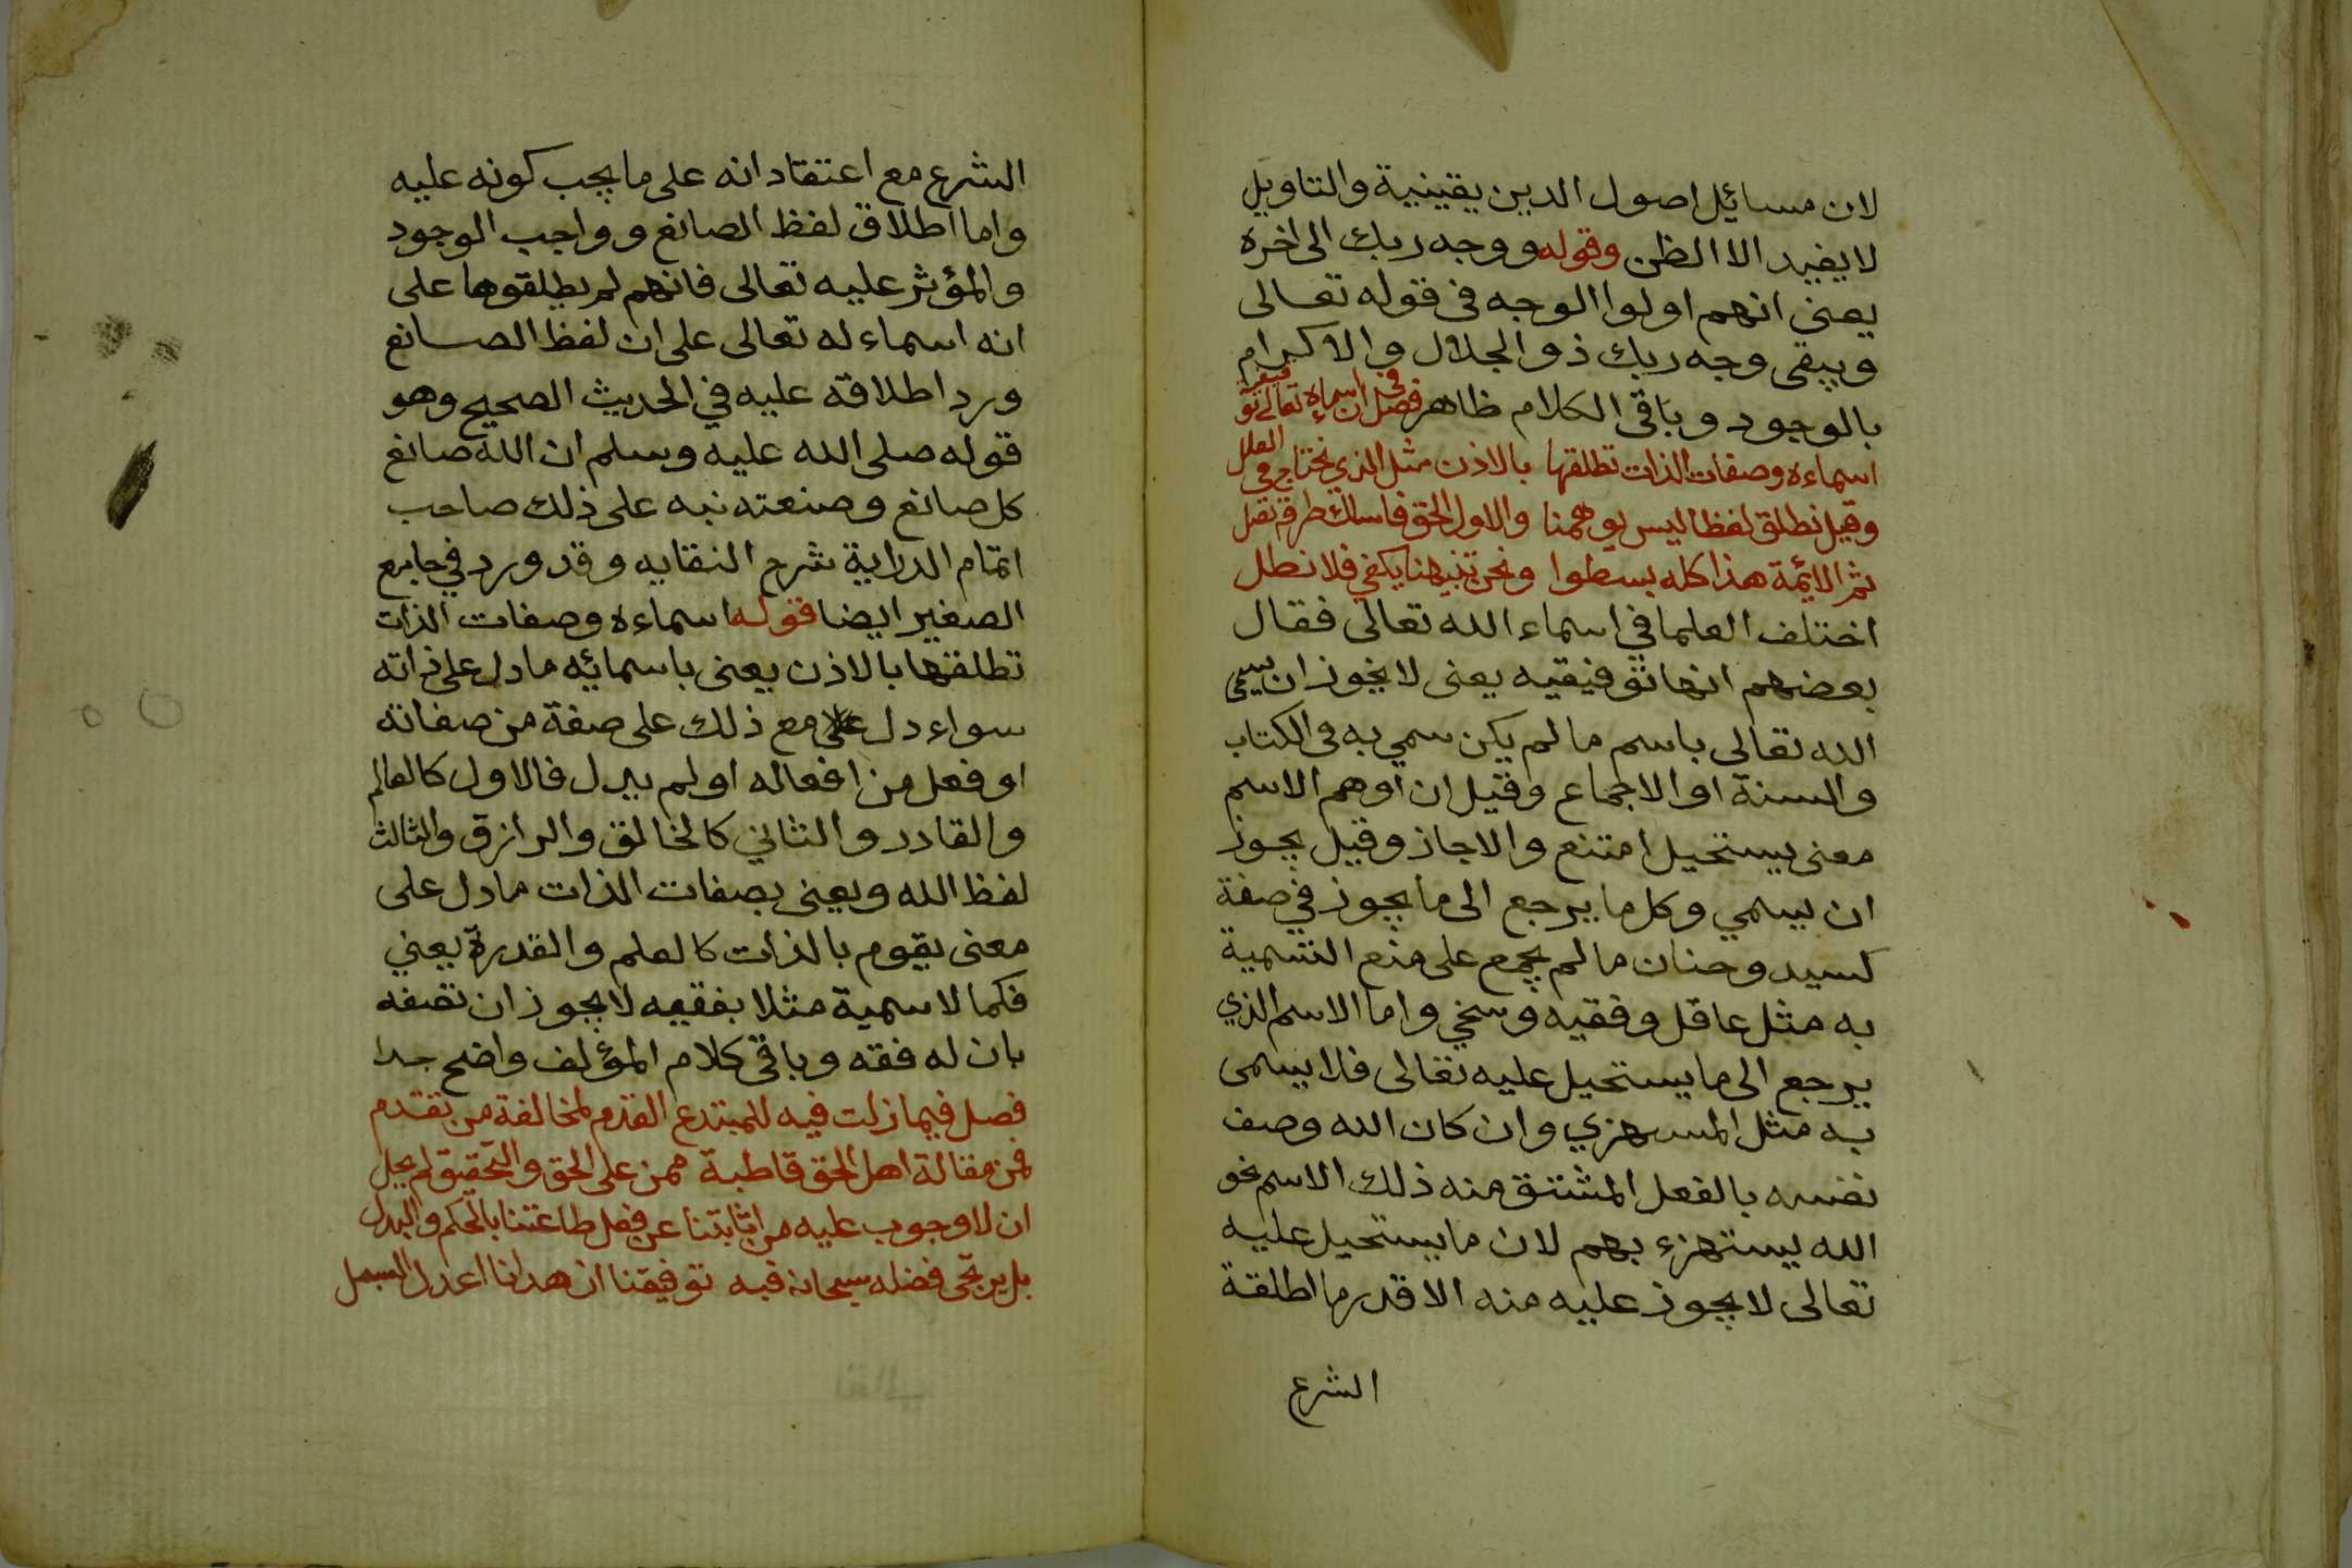 لان مسائيل اصول الدين يقينية والتاويل
لا يفيد الا الظن وقوله ووجه ربك الى اخره
يعني انهم اولوا الوجه في قوله تعالى
ويبقى وجه ربك ذو الجلال والاكرام
بالوجود وباقي الكلام ظاهر فصل في ان اسماءه تعالى توقيفية
اسماءه وصفات الذات تطلقها بالاذن مثل الذي نحتاج في العلل
وقيل نطلق لفظا ليس يوهمنا والاول الحق فاسلك طرقه تصل
ثم الائمة هذا كله بسطوا ونحن تنبيهنا يكفي فلا نطل
اختلف العلما في اسماء الله تعالى فقال
بعضهم انها توفيقيه يعنى لا يجوز ان يسمى
الله تعالى باسم ما لم يكن سمي به في الكتاب
والسنة او الاجماع وقيل ان اوهم الاسم
معنى يستحيل امتنع والا جاز وقيل يجوز
ان يسمي وكل ما يرجع الى ما يجوز في صفة
كسيد وحنان ما لم يجمع على منع التسمية
به مثل عاقل وفقيه وسخي واما الاسم الذي
يرجع الى ما يستحيل عليه تعالى فلا يسمى
به مثل المستهزي وان كان الله وصف
نفسه بالفعل المشتق منه ذلك الاسم نحو
الله يستهزء بهم لان ما يستحيل عليه
تعالى لا يجوز عليه منه الا قدر ما اطلقة
الشرع
الشرع مع اعتقاد انه على ما يجب كونه عليه
واما اطلاق لفظ الصانع وواجب الوجود
والمؤثر عليه تعالى فانهم لم يطلقوها على
انه اسماء له تعالى على ان لفظ الصانع
ورد اطلاقه عليه في الحديث الصحيح وهو
قوله صلى الله عليه وسلم ان الله صانع
كل صانع وصنعته نبه على ذلك صاحب
اتمام الدراية شرح النقايه وقد ورد في جامع
الصغير ايضا قوله اسماءه وصفات الذات
تطلقها بالاذن يعنى باسمائه ما دل على ذاته
سواء دل مع ذلك على صفة من صفاته
او فعل من افعاله او لم يدل فالاول كالعالم
والقادر والثاني كالخالق والرازق والثالث
لفظ الله ويعني بصفات الذات ما دل على
معنى يقوم بالذات كالعلم والقدرة يعني
فكما لا سمية مثلا بفقيه لا يجوز ان تصفه
بان له فقه وباقي كلام المؤلف واضح جدا
فصل فيما زلت فيه للمبتدع القدم لمخالفة من تقدم
فمن مقالة اهل الحق قاطبة ممن على الحق والتحقيق لم يحل
ان لا وجوب عليه من اثابتنا عن فعل طاعتنا بالحكم والبدل
بل يرتجى فضله سبحانه فبه توفيقنا ان هدانا اعدل السبل